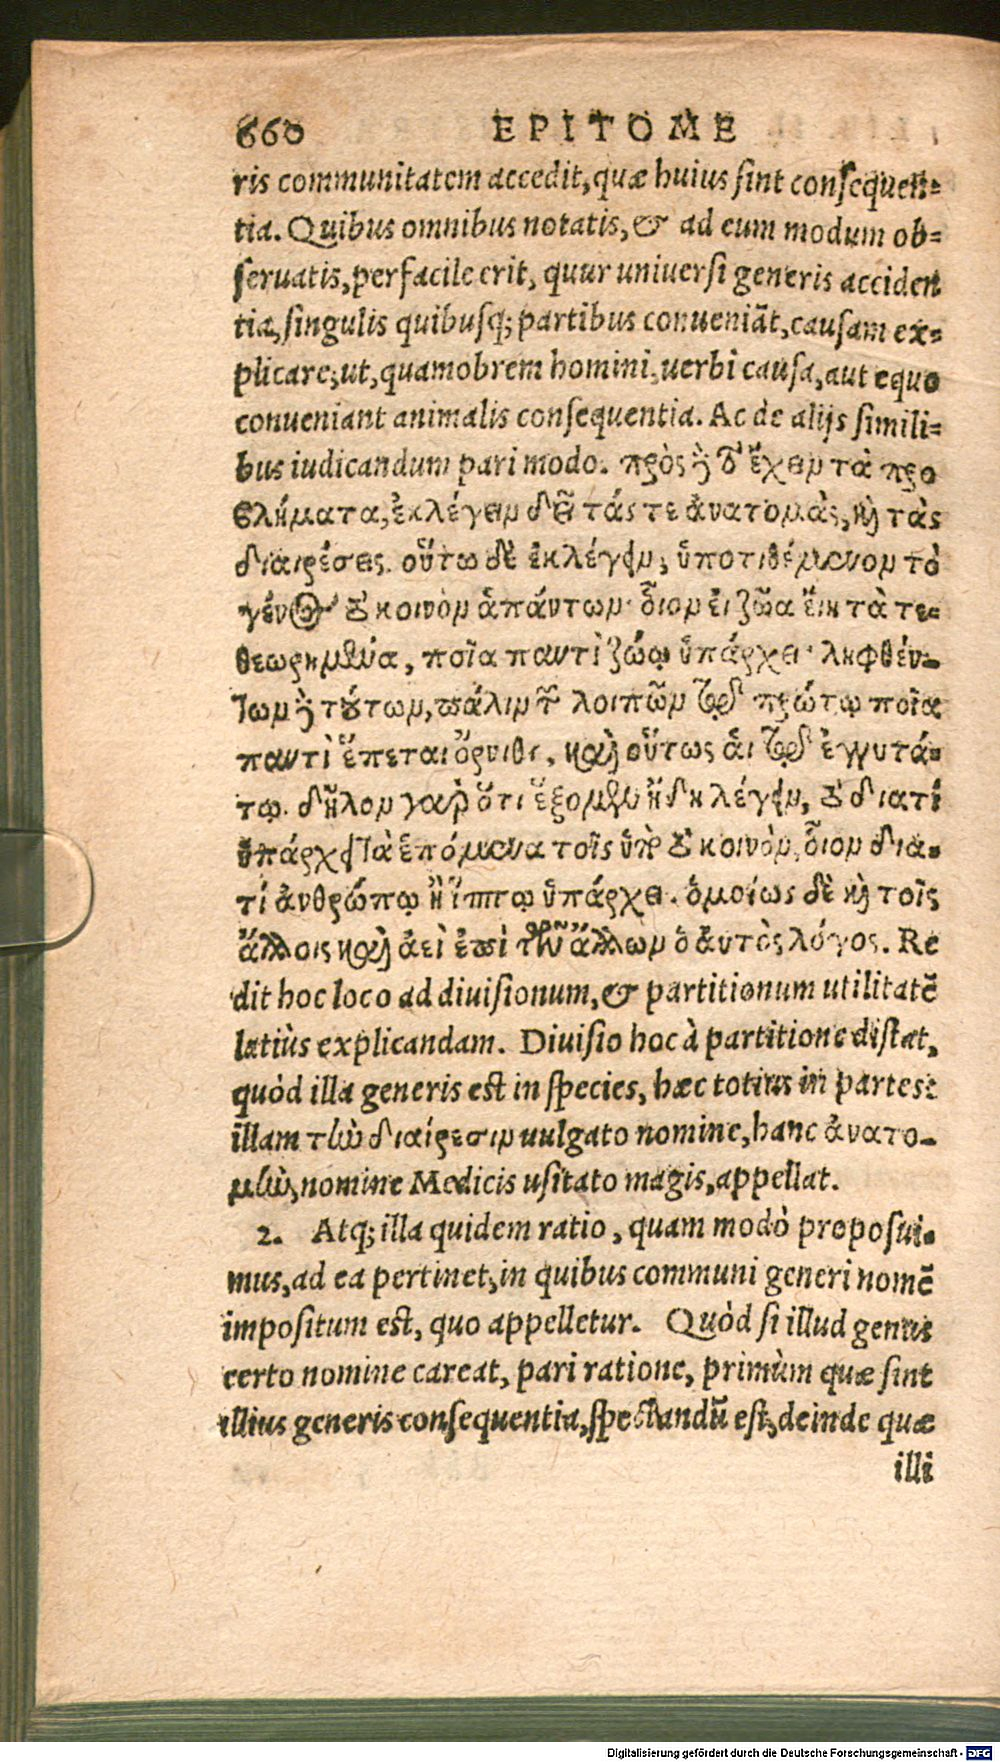 660 EPITOME
ris communitatem accedit, quæ huius sint consequen-
tia. Quibus omnibus notatis, & ad eum modum ob-
seruatis, perfacile erit, quur uniuersi generis acciden
tia, singulis quibusq; partibus conueniãt, causam ex-
plicare; ut, quamobrem homini, uerbi causa, aut equo
conueniant animalis consequentia. Ac de alijs simili-
bus iudicandum pari modo. πρὸς ἢ τὸ ἔχειν τὰ προ
βλήματα, ἐκλέγειν δεῖ τάς τε ἀνατομὰς, καὶ τὰς
διαιρέσεις. οὕτω δὲ ἐκλέγειν, ὑποτιθέμενον τὸ
γένος τὸ κοινὸν ἁπάντων· οἷον εἰ ζῶα εἴη τὰ τε-
θεωρημένα, ποῖα παντὶ ζώῳ ὑπάρχει· ληφθέν-
των ἢ τούτων, πάλιν τῶν λοιπῶν τῷ πρώτῳ ποῖα
παντὶ ἕπεται ὄρνιθι, καὶ οὕτως ἀεὶ τῷ ἐγγυτά-
τῳ. δῆλον γὰρ ὅτι ἕξομεν ἤδη λέγειν, τὸ διατί
ὑπάρχει τὰ ἑπόμενα τοῖς ὑπὸ τὸ κοινὸν, οἷον δια-
τί ἀνθρώπῳ ἢ ἵππῳ ὑπάρχει. ὁμοίως δὲ καὶ τοῖς
ἄλλοις καὶ ἀεὶ ἐπὶ τῶν ἄλλων ὁ αὐτὸς λόγος. Re
dit hoc loco ad diuisionum, & partitionum utilitatẽ
latiùs explicandam. Diuisio hoc à partitione distat,
quòd illa generis est in species, hæc totius in partes:
illam τὴν διαίρεσιν uulgato nomine, hanc ἀνατο-
μὴν, nomine Medicis usitato magis, appellat.
2. Atq; illa quidem ratio, quam modò proposui-
mus, ad ea pertinet, in quibus communi generi nomẽ
impositum est, quo appelletur. Quòd si illud genus
certo nomine careat, pari ratione, primùm quæ sint
illius generis consequentia, spectandũ est, deinde quæ
illi
Digitalisierung gefördert durch die Deutsche Forschungsgemeinschaft - DFG